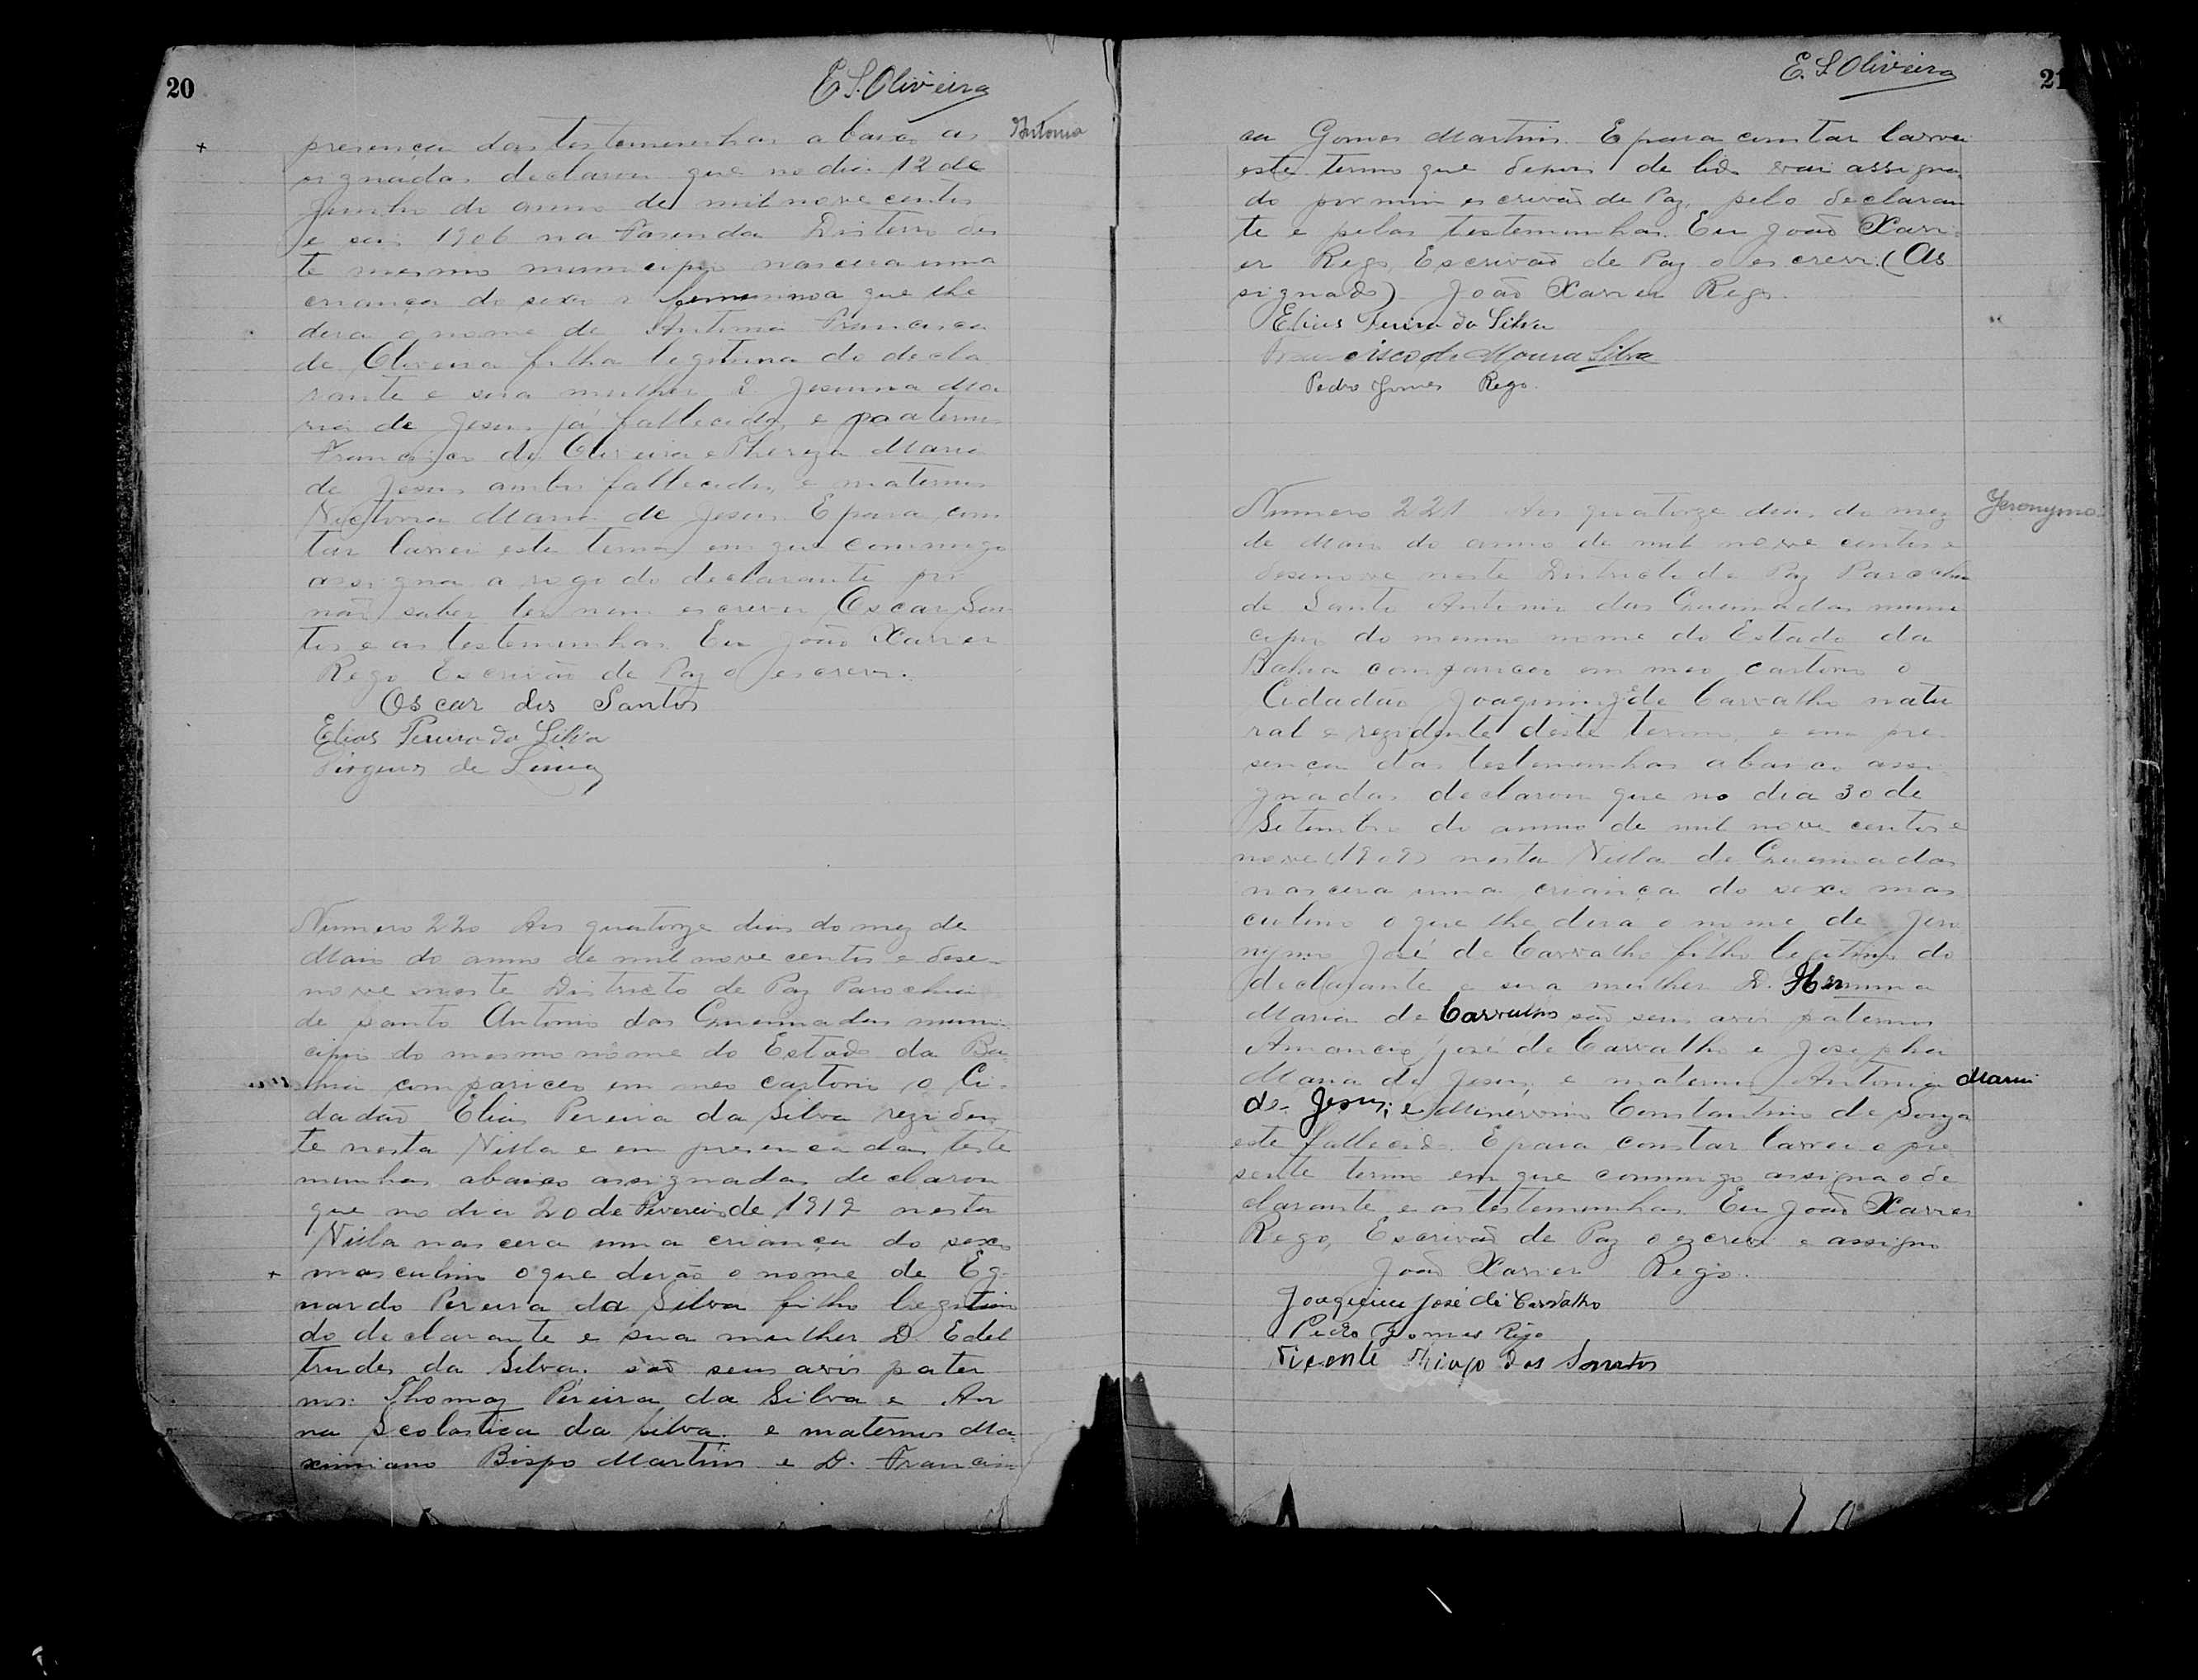 20
E. S. Oliveira
Antonia
presença das testemunhas abaixo as
signadas declarou que no dia 12 de
Junho do anno de mil nove centos
e seis 1906 na Fazenda Disterro des
te mesmo municipio nascera uma
criança do sexo feminino a que lhe
dera o nome de Antonia Francisca
de Oliveira filha legitima do decla
rante e sua mulher D. Jesuina Ma
ria de Jesus já fallecida, e paaterno
Francisco de Oliveira e Thereza Maria
de Jesus ambos fallecidos, e maternos
Victoria Maria de Jesus. E para cons
tar lavrei este termo em que commigo
assigna a rogo do declarante por
não saber ler nem escrever Oscar San
tos e as testemunhas. Eu João Xavier
Rego Escrivão de Paz o escrevi.
Oscar dos Santos
Elias Pereira da Silva
de Lima
Numero 220 Aos quatorze dias do mez de
Maio do anno de mil nove centos e dese-
nove neste Districto de Paz Parochia
de Santo Antonio das Queimadas muni
cipio do mesmo nome do Estado da Ba-
hia compariceo em meo cartorio o Ci-
dadão Elias Pereira da Silva reziden
te nesta Villa e em presença das teste
munhas abaixo assignadas declarou
que no dia 20 de Fevereiro de 1912 nesta
Villa nascera uma criança do sexo
masculino o que derão o nome de Eg
nardo Pereira da Silva filho legitimo
do declarante e sua mulher D. Edel
trudes da Silva, são seus avós pater
nos: Thomaz Pereira da Silva e An
na Scolastica da Silva. e maternos Ma-
ximiano Bispo Martins e D. Francis
E. S. Oliveira
21
ca Gomes Martins. E para constar lavrei
este termo que depois de lido vai assigna
do por mim escrivão de Paz, pelo declaran
te e pelas testemunhas. Eu João Xavi-
er Rego, Escrivão de Paz o escrevi. (As
signado) João Xavier Rego.
Elias Pereira da Silva
Francisco de Moura Silva
Pedro Gomes Rego.
Jeronymo
Numero 221 Aos quatorze dias do mez
de Maio do anno de mil nove centos e
desenove neste Districto de Paz Parochia
de Santo Antonio das Queimadas muni
cipio do mesmo nome do Estado da
Bahia compariceo em meo cartorio o
Cidadão Joaquim J. de Carvalho natu
ral e rezidente deste termo, e em pre-
sença das testemunhas abaixo assi
gnadas declarou que no dia 30 de
Setembro do anno de mil nove centos e
nove (1909) nesta Villa de Queimadas
nascera uma criança do sexo mas
culino o que lhe dera o nome de Jero
nymo José de Carvalho filho legitimo do
declarante e sua mulher D. Hermina
Maria de Carvalho são seus avós paternos
Amancio José de Carvalho e Josepha
Maria de Jesus, e maternos Antonia Maria
de Jesus; e Minervino Constantino de Souza
este fallecido. E para constar lavrei o pre
sente termo em que commigo assigna o de
clarante e as testemunhas. Eu João Xavier
Rego, Escrivão de Paz o escrevi e assigno
João Xavier Rego.
Joaquim José de Carvalho
Pedro Gomes Rego
Vicente Thiago dos Santos